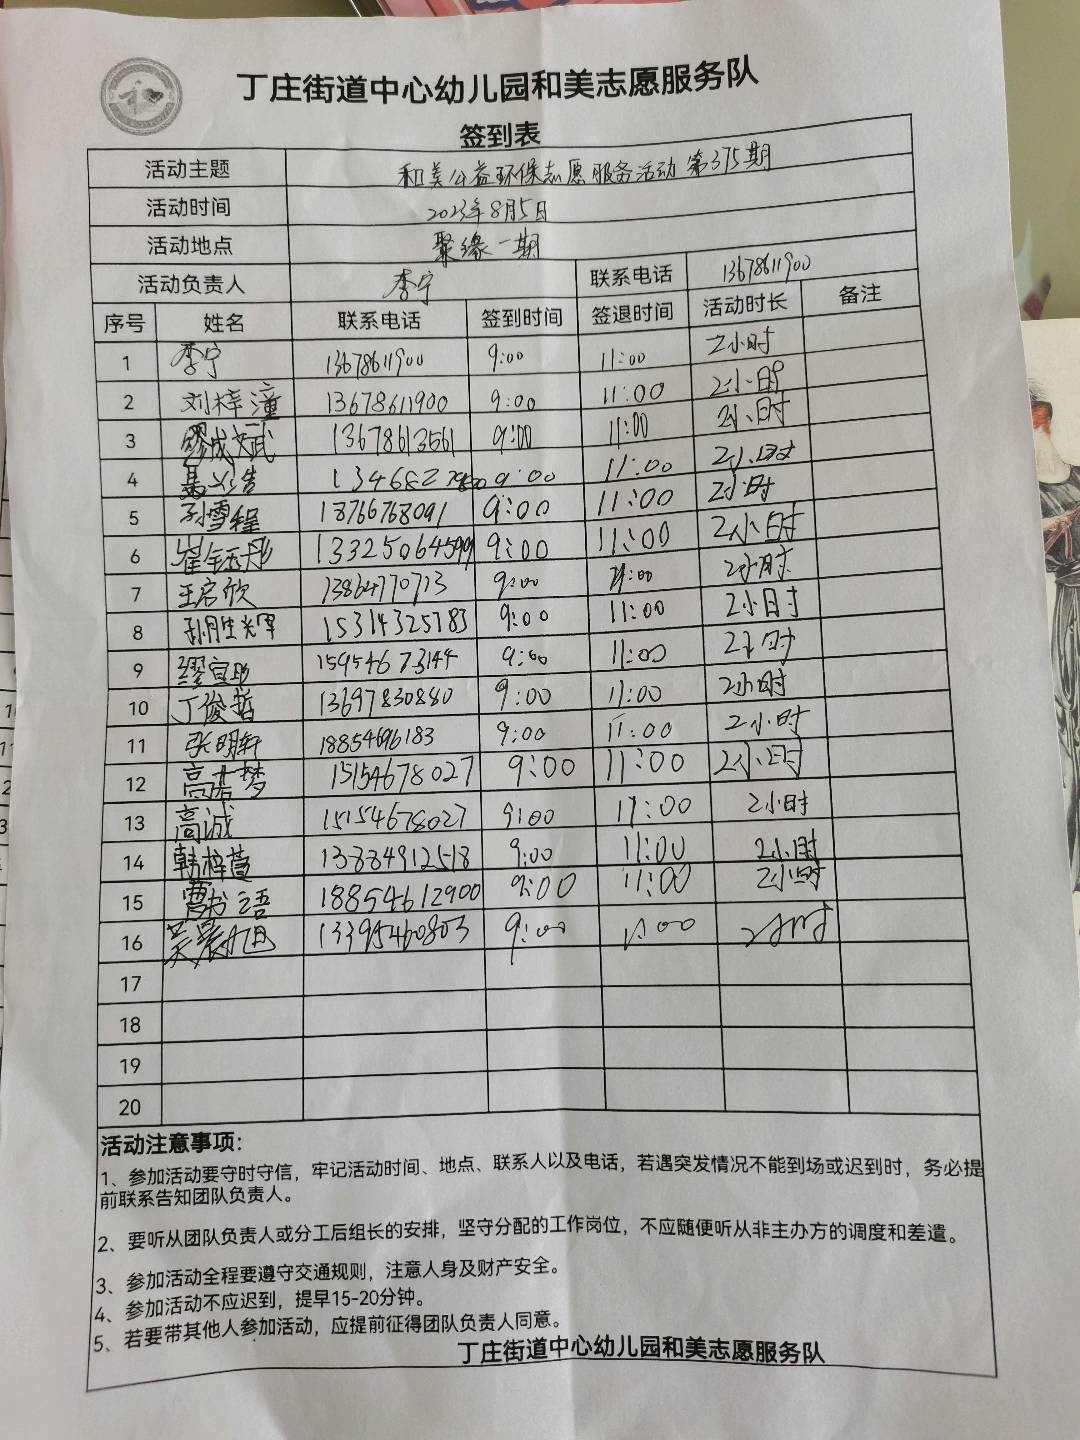 和
丁庄街道中心幼儿园和美志愿服务队
签到表
活动主题 和美公益环保志愿服务活动第375期
活动时间 2023年8月5日
活动地点 聚缘一期
活动负责人 李宁 联系电话 13678611900
序号 姓名 联系电话 签到时间 签退时间 活动时长 备注
1 李宁 13678611900 9:00 11:00 2小时
2 刘梓潼 13678611900 9:00 11:00 2小时
3 缪成文武 13678613561 9:00 11:00 2小时
4 9:00 11:00 2小时
5 孙雪程 18766768091 9:00 11:00 2小时
6 崔钰彤 13325064599 9:00 11:00 2小时
7 王启欣 13864770713 9:00 11:00 2小时
8 15314325783 9:00 11:00 2小时
9 缪宜聪 15954673144 9:00 11:00 2小时
10 丁俊哲 13697830880 9:00 11:00 2小时
11 张明轩 18854696183 9:00 11:00 2小时
12 高若梦 15154678027 9:00 11:00 2小时
13 高诚 15154678027 9:00 11:00 2小时
14 韩梓萱 13884912518 9:00 11:00 2小时
15 18854612900 9:00 11:00 2小时
16 13395460803 9:00 1:00 2小时
17
18
19
20
活动注意事项：
1、参加活动要守时守信，牢记活动时间、地点、联系人以及电话，若遇突发情况不能到场或迟到时，务必提
前联系告知团队负责人。
2、要听从团队负责人或分工后组长的安排，坚守分配的工作岗位，不应随便听从非主办方的调度和差遣。
3、参加活动全程要遵守交通规则，注意人身及财产安全。
4、参加活动不应迟到，提早15-20分钟。
5、若要带其他人参加活动，应提前征得团队负责人同意。
丁庄街道中心幼儿园和美志愿服务队